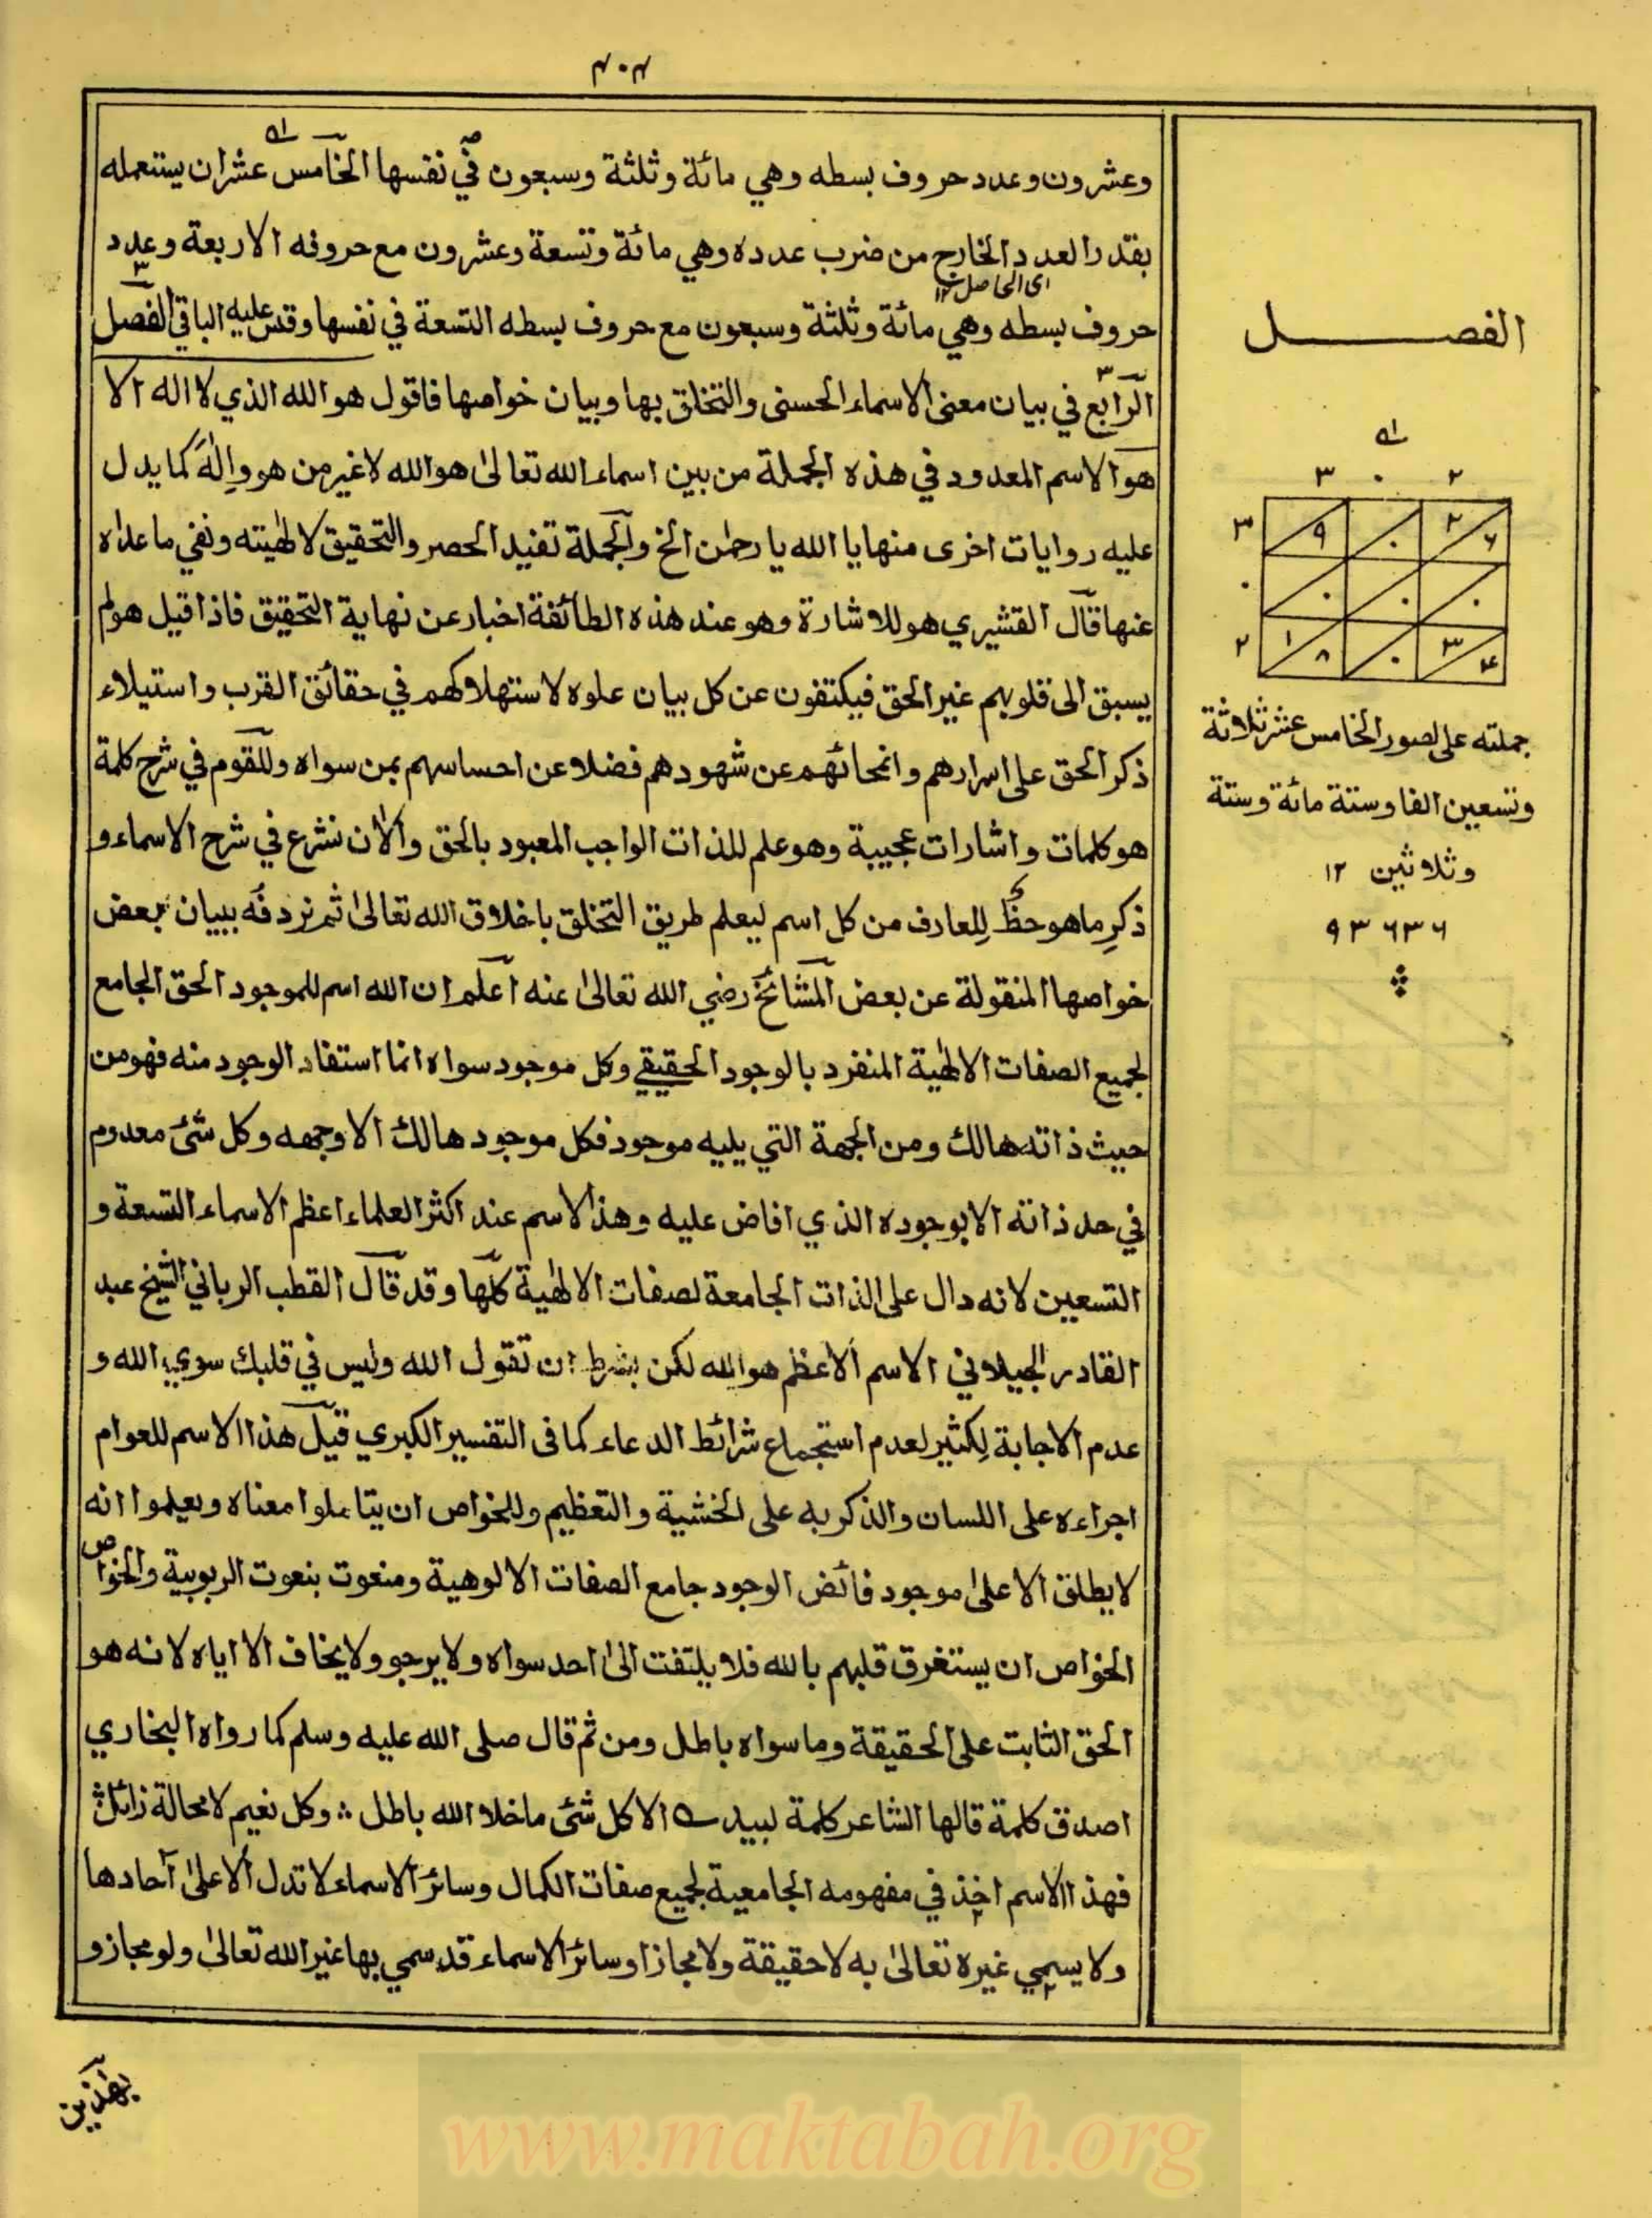 ٣٠٣
وعشرون وعدد حروف بسطه وهي مائة وثلثة وسبعون في نفسها الخامس عشر ان يستعمله
بقدر العدد الخارج من ضرب عدده وهي مائة وتسعة وعشرون مع حروفه الاربعة وعدد
اى الحاصل ١٢
حروف بسطه وهي مائة وثلثة وسبعون مع حروف بسطه التسعة في نفسها وقس عليه الباقي الفصل
الرابع في بيان معنى الاسماء الحسنى والتخلق بها وبيان خواصها فاقول هو الله الذي لا اله الا
هو الاسم المعدود في هذه الجملة من بين اسماء الله تعالىٰ هو الله لا غير من هو واِلٰهَ كما يدل
عليه روايات اخرى منها يا الله يا رحمٰن الخ والجملة تفيد الحصر والتحقيق لالٰهيته ونفي ما عداه
عنها قال القشيري هو للاشارة وهو عند هذه الطائفة اخبار عن نهاية التحقيق فاذا قيل هو لم
يسبق الى قلوبهم غير الحق فيكتفون عن كل بيان علوه لاستهلاكهم في حقائق القرب واستيلاء
ذكر الحق على اسرارهم وانمحائهم عن شهودهم فضلا عن احساسهم بمن سواه وللقوم في شرح كلمة
هو كلمات واشارات عجيبة وهو علم للذات الواجب المعبود بالحق والان نشرع في شرح الاسماء و
ذكرِ ما هو حظٌ لِلعارف من كل اسم ليعلم طريق التخلق باخلاق الله تعالىٰ ثم نردفُه ببيان بعض
خواصها المنقولة عن بعض المشائخ رضي الله تعالىٰ عنه اعلم ان الله اسم للموجود الحق الجامع
لجميع الصفات الالٰهية المنفرد بالوجود الحقيقي وكل موجود سواه انما استفاد الوجود منه فهو من
حيث ذاته هالك ومن الجهة التي يليه موجود فكل موجود هالك الا وجهه وكل شئ معدوم
في حد ذاته الا بوجوده الذي افاض عليه وهذا الاسم عند اكثر العلماء اعظم الاسماء التسعة و
التسعين لانه دال على الذات الجامعة لصفات الالٰهية كلها وقد قال القطب الرباني الشيخ عبد
القادر الجيلاني الاسم الاعظم هو الله لكن بشرط ان تقول الله وليس في قلبك سوي الله و
عدم الاجابة لِكثير لعدم استجماع شرائط الدعاء كما فى التفسير الكبرى قيل هذا الاسم للعوام
اجراءه على اللسان والذكر به على الخشية والتعظيم وللخواص ان يتاملوا معناه ويعلموا انه
لا يطلق الا علىٰ موجود فائض الوجود جامع الصفات الالوهية ومنعوت بنعوت الربوبية والخواص
الخواص ان يستغرق قلبهم بالله فلا يلتفت الىٰ احد سواه ولا يرجو ولا يخاف الا اياه لانه هو
الحق الثابت على الحقيقة وما سواه باطل ومن ثم قال صلى الله عليه وسلم كما رواه البخاري
اصدق كلمة قالها الشاعر كلمة لبيد الا كل شئ ما خلا الله باطل ؞ وكل نعيم لا محالة زائل
فهذا الاسم اخذ في مفهومه الجامعية لجميع صفات الكمال وسائر الاسماء لا تدل الا علىٰ آحادها
ولا يسمي غيره تعالىٰ به لا حقيقة ولا مجازا وسائر الاسماء قد سمي بها غير الله تعالىٰ ولو مجاز و
بهٰذين
الفصل
٣ ٠ ٢
٣ ٩ ٠ ٢ ٦
٠ ٠ ٠ ٠
٢ ١ ٨ ٠ ٣ ٤
جملته على صور الخامس عشر ثلاثة
وتسعين الفا وستة مائة وستة
وثلاثين ١٢
٩٣٦٣٦
www.maktabah.org